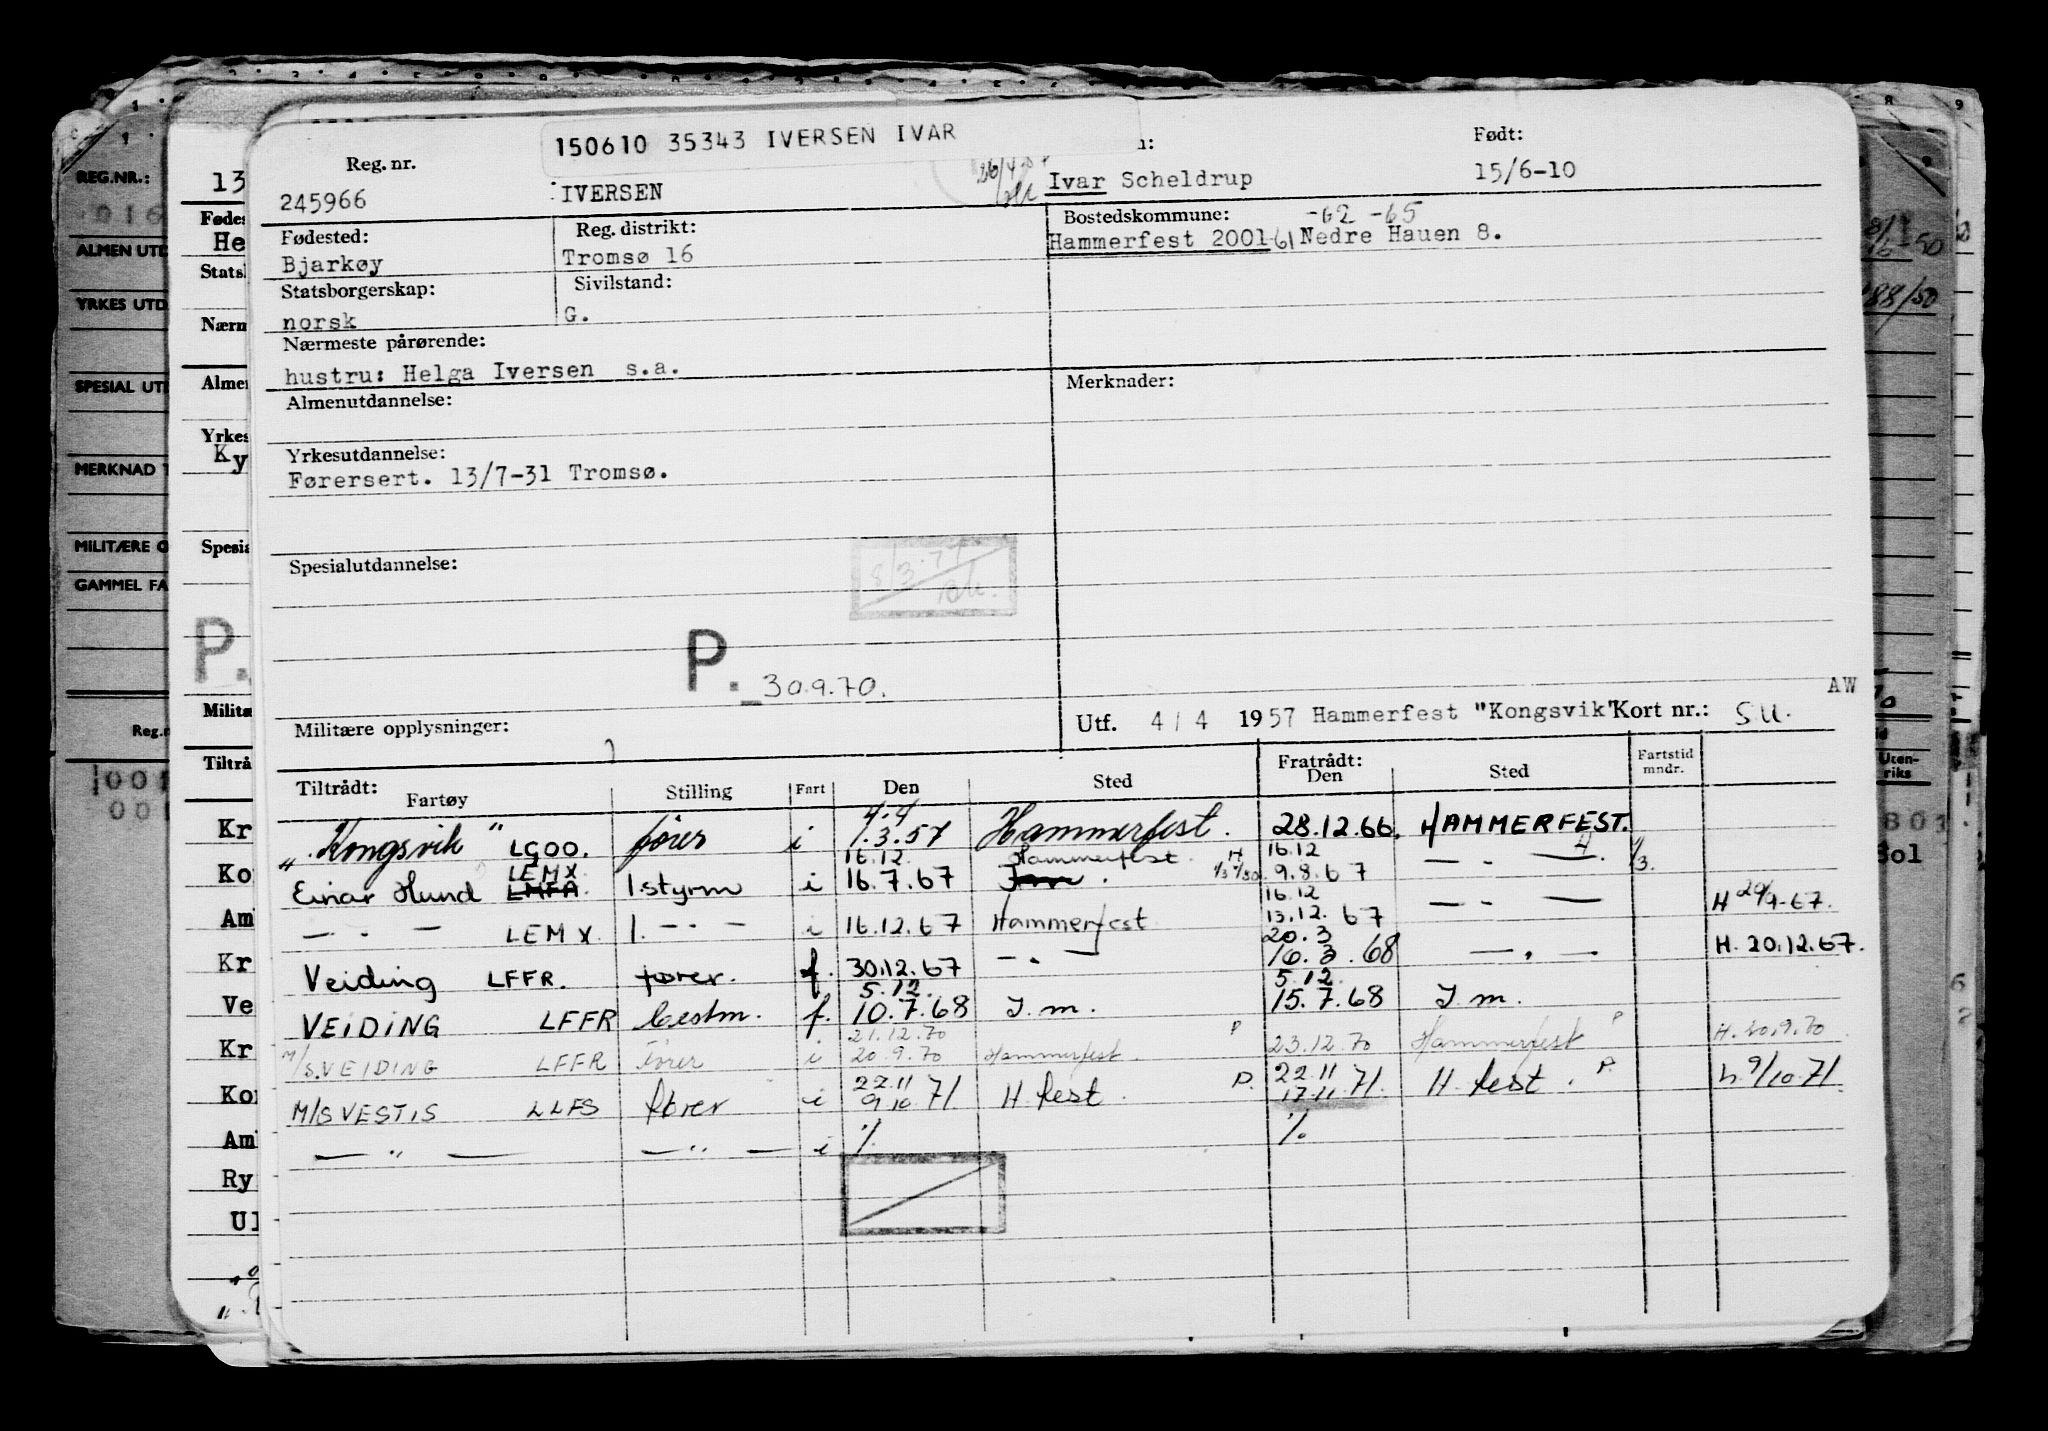 150610 35343 IVERSEN IVAR
Reg. nr. Født:
245966 IVERSEN Ivar Scheldrup 15/6-10
Fødested: Reg. distrikt: Bostedskommune: -62 -65
Bjarkøy Tromsø 16 Hammerfest 2001-61 Nedre Hauen 8.
Statsborgerskap: Sivilstand:
norsk G.
Nærmeste pårørende:
hustru: Helga Iversen s.a.
Almenutdannelse: Merknader:
Yrkesutdannelse:
Førersert. 13/7-31 Tromsø.
Spesialutdannelse:
P. 30.9.70.
AW
Militære opplysninger: Utf. 4/4 1957 Hammerfest "Kongsvik" Kort nr.: S.U.
Tiltrådt: Fratrådt: Fartstid mndr.
Fartøy Stilling Fart Den Sted Den Sted
4.4
"Kongsvik" LGOO. fører i 1.3.57 Hammerfest. 28.12.66. HAMMERFEST.
LEMX 16.12. Hammerfest. 16.12
Einar Hund LMFA. 1.styrm i 16.7.67 9.8.67 — " — 1/3.
16.12
— " — LEMX 1. — " — i 16.12.67 Hammerfest 13.12.67 — " — H 20/9-67.
20.3
Veiding LFFR. fører. f. 30.12.67 — " — 16.3.68 — " — H. 20.12.67.
5.12. 5.12.
VEIDING LFFR bestm. f. 10.7.68 J.m. 15.7.68 J.m.
21.12.70 P P
M/S VEIDING LFFR fører i 20.9.70 Hammerfest. 23.12.70 Hammerfest H. 20.9.70
22.11 22.11
M/S VESTIS LLFS fører i 9.10.71. H.fest. P. 17.11.71. H.fest. P. h. 9/10.71.
— " — — " — i % %
REG.NR.:
ALMEN UTD
YRKES UTD
SPESIAL UTD
MERKNAD
MILITÆRE O
GAMMEL FA
Reg.n
13
Fødes
He
Stats
Nærm
Almen
Yrkes
Ky
Spesia
P.
Militæ
Tiltrå
Kr
Ko
Am
Kr
Ve
Kr
Kor
Am
Ry
Ul
Uten-
riks